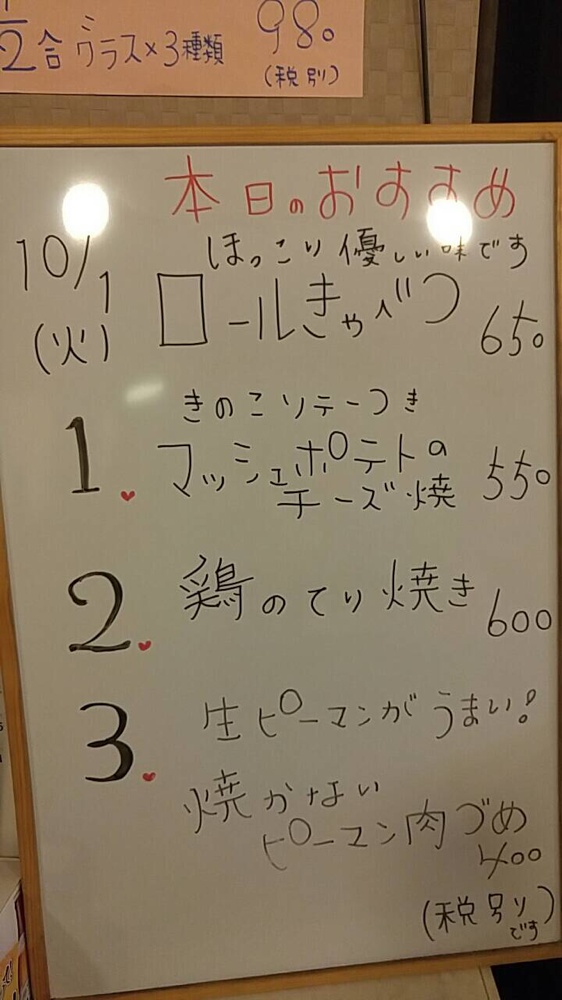 1/2合グラス×3種類 980
(税別)
本日のおすすめ
10/1
(火)
ほっこり優しい味です
ロールきゃべつ 650
1. きのこソテーつき
マッシュポテトの
チーズ焼 550
2. 鶏のてり焼き 600
3. 生ピーマンがうまい!
焼かない
ピーマン肉づめ
400
(税別
です)